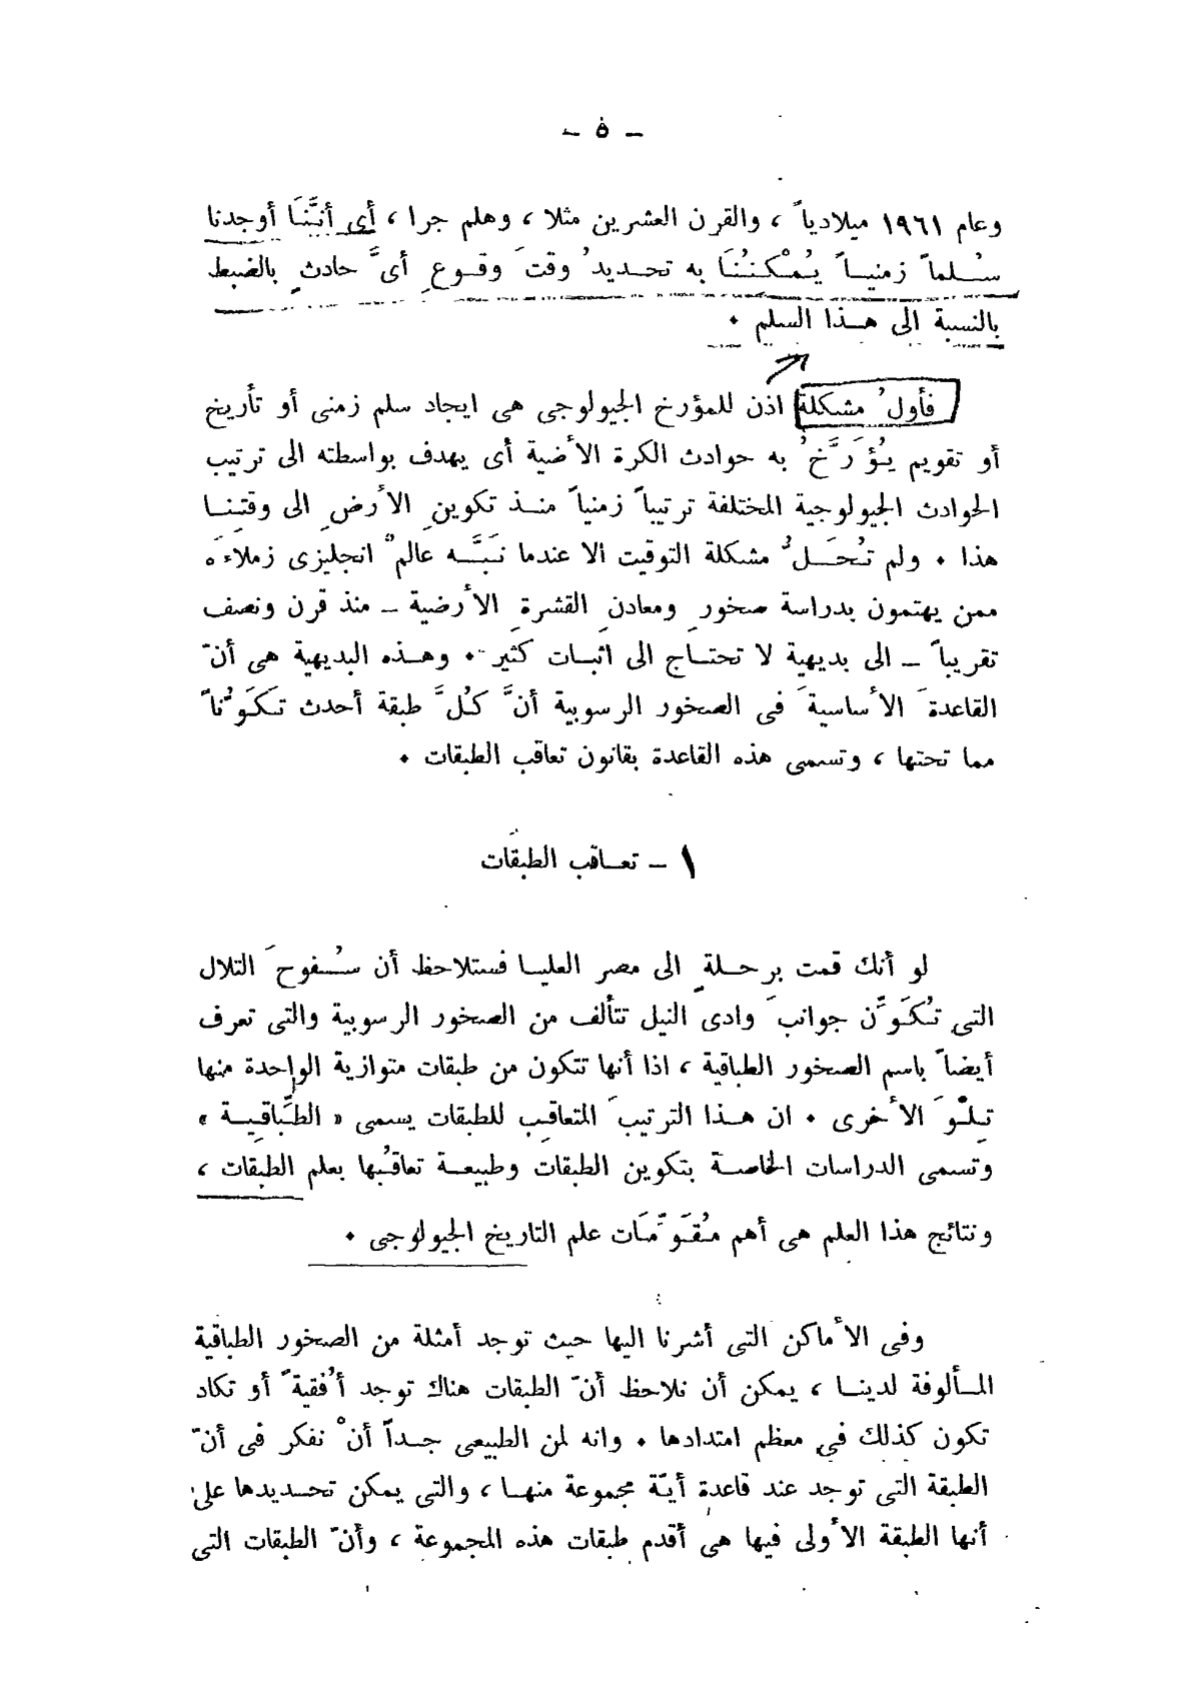 – ٥ –
وعام ١٩٦١ ميلادياً ، والقرن العشرين مثلا ، وهلم جرا ، أى أنَّنَا أوجدنا
سُلماً زمنياً يُمْكنُنَا به تحديدُ وقتَ وقوعِ أىَّ حادثٍ بالضبط
بالنسبة الى هذا السلم ٠
فأولُ مشكلة اذن للمؤرخ الجيولوجى هى ايجاد سلم زمنى أو تأريخ
أو تقويم يُؤَرَّخُ به حوادث الكرة الأضية أى يهدف بواسطته الى ترتيب
الحوادث الجيولوجية المختلفة ترتيباً زمنياً منذ تكوينِ الأرضِ الى وقتِنا
هذا ٠ ولم تُحَلُّ مشكلة التوقيت الا عندما نَبَّه عالمٌ انجليزى زملاءَه
ممن يهتمون بدراسة صخورِ ومعادنِ القشرةِ الأرضية – منذ قرن ونصف
تقريباً – الى بديهية لا تحتاج الى اثبات كثير ٠ وهذه البديهية هى أنّ
القاعدةَ الأساسيةَ فى الصخور الرسوبية أنَّ كُلَّ طبقة أحدث تَكَوُّناً
مما تحتها ، وتسمى هذه القاعدة بقانون تعاقب الطبقات ٠
١ – تعاقب الطبقات
لو أنك قمت برحلةٍ الى مصر العليا فستلاحظ أن سُفوحَ التلال
التى تُكَوِّن جوانبَ وادى النيل تتألف من الصخور الرسوبية والتى تعرف
أيضاً باسم الصخور الطباقية ، اذا أنها تتكون من طبقات متوازية الواحدة منها
تِلْوَ الأخرى ٠ ان هذا الترتيبَ المتعاقِب للطبقات يسمى « الطَّباقِية »
وتسمى الدراسات الخاصة بتكوين الطبقات وطبيعة تعاقُبها بعلم الطبقات ،
ونتائج هذا العلم هى أهم مُقَوِّمَات علم التاريخ الجيولوجى ٠
وفى الأماكن التى أشرنا اليها حيث توجد أمثلة من الصخور الطباقية
المألوفة لدينا ، يمكن أن نلاحظ أنّ الطبقات هناك توجد أُفقيةً أو تكاد
تكون كذلك في معظم امتدادها ٠ وانه لمن الطبيعى جداً أنْ نفكر فى أنّ
الطبقة التى توجد عند قاعدة أيّة مجموعة منها ، والتى يمكن تحديدها على
أنها الطبقة الأولى فيها هى أقدم طبقات هذه المجموعة ، وأنّ الطبقات التى